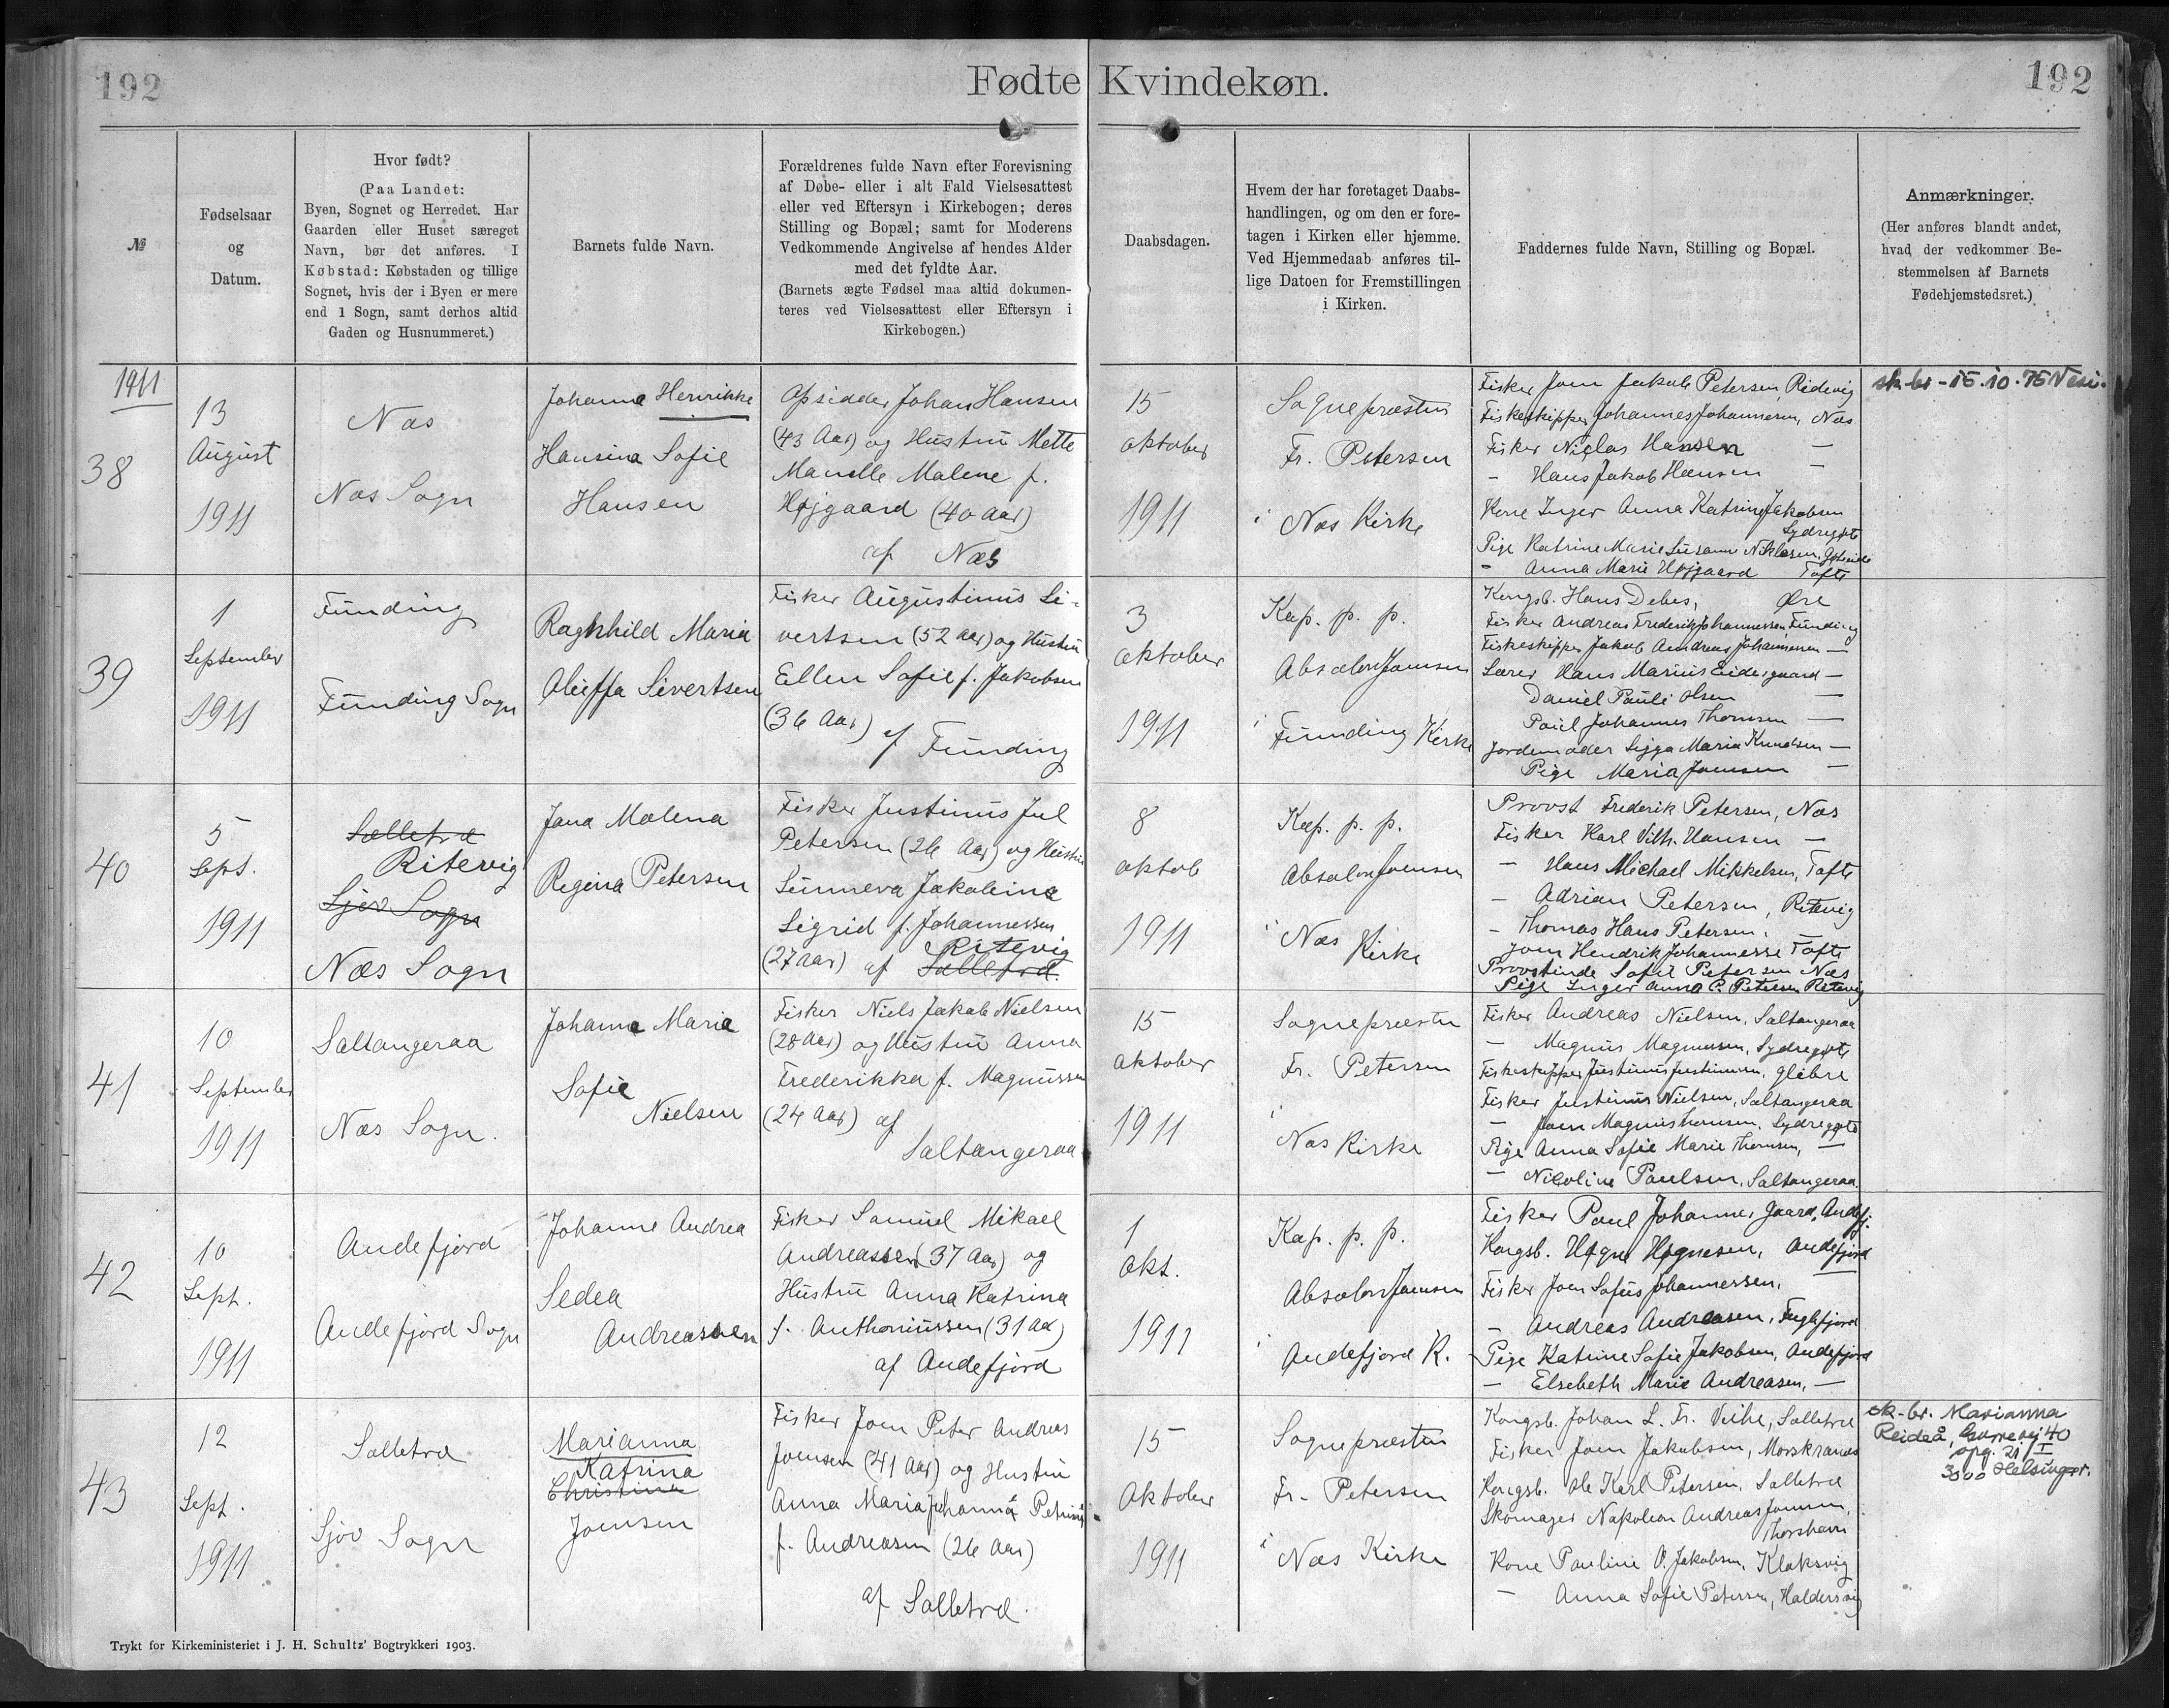 192
Fødte Kvindekøn.
192
№
Fødselsaar
og
Datum.
Hvor født?
(Paa Landet:
Byen, Sognet og Herredet. Har
Gaarden eller Huset særeget
Navn, bør det anføres. I
Købstad: Købstaden og tillige
Sognet, hvis der i Byen er mere
end 1 Sogn, samt derhos altid
Gaden og Husnummeret.)
Barnets fulde Navn.
Forældrenes fulde Navn efter Forevisning
af Døbe- eller i alt Fald Vielsesattest
eller ved Eftersyn i Kirkebogen; deres
Stilling og Bopæl; samt for Moderens
Vedkommende Angivelse af hendes Alder
med det fyldte Aar.
(Barnets ægte Fødsel maa altid dokumen-
teres ved Vielsesattest eller Eftersyn i
Kirkebogen.)
Daabsdagen.
Hvem der har foretaget Daabs-
handlingen, og om den er fore-
tagen i Kirken eller hjemme.
Ved Hjemmedaab anføres til-
lige Datoen for Fremstillingen
i Kirken.
Faddernes fulde Navn, Stilling og Bopæl.
Anmærkninger.
(Her anføres blandt andet,
hvad der vedkommer Be-
stemmelsen af Barnets
Fødehjemstedsret.)
1911
38
13
August
1911
Næs
Næs Sogn
Johanna Henrikke
Hansina Sofie
Hansen
Opsidder Johan Hansen
(43 Aar) og Hustru Mette
Manelle Malene f.
Højgaard (40 Aar)
af Næs
15
Oktober
1911
Sognepræsten
Fr. Petersen
i Næs Kirke
Fisker Joen Jakob Petersen, Ridevig
Fiskeskipper Johannes Johannesen, Næs
Fisker Niclas Hansen —
- Hans Jakob Hansen —
Kone Inger Anna Katrine Jakobsen
Sydregøte
Pige Katrine Marie Susanne Niklasen, Gøteeide
- Anna Marie Højgaard Tofte
sk. br - 15.10.75
39
1
September
1911
Funding
Funding Sogn
Raghhild Maria
Oluffa Sivertsen
Fisker Augustinus Si-
vertsen (52 Aar) og Hustru
Ellen Sofie f. Jakobsen
(36 Aar)
af Funding
3
Oktober
1911
Kap. p. p.
Absalon Joensen
i Funding Kirke
Kongsb. Hans Debes, Øre
Fisker Andreas Frederik Johannessen, Funding
Fiskeskipper Jakob Andreas Johannesen —
Lærer Hans Marius Eidesgaard —
Daniel Pauli Olsen —
Poul Johannes Thomsen —
Jordemoder Sigga Maria Knudsen —
Pige Maria Joensen —
40
5
Sept.
1911
Salletræ
Ritevig
Sjov Sogn
Næs Sogn
Jana Malena
Regina Petersen
Fisker Justinus Jul
Petersen (26 Aar) og Hustru
Sunneva Jakobina
Sigrid f. Johannessen
Ritevig
(27 Aar) af Salletræ.
8
Oktob
1911
Kap. p. p.
Absalon Joensen
i Næs
Kirke
Provst Frederik Petersen, Næs
Fisker Karl Vilh. Hansen —
- Hans Michael Mikkelsen, Tofte
- Adrian Petersen, Ritevig
- Thomas Hans Petersen,
Joen Hendrik Johannesse Tofte
Provstinde Sofie Petersen Næs
Pige Inger Anna C. Petersen Ritevig
41
10
September
1911
Saltangeraa
Næs Sogn.
Johanna Maria
Sofie
Nielsen
Fisker Niels Jakob Nielsen
(28 Aar) og Hustru Anna
Frederikka f. Magnussen
(24 Aar) af
Saltangeraa
15
Oktober
1911
Sognepræsten
Fr. Petersen
i
Næs Kirke
Fisker Andreas Nielsen, Saltangeraa
— Magnus Magnussen, Sydregøte
Fiskeskipper Justinus Justinussen, Glibre
Fisker Justinus Nielsen, Saltangeraa
- Joen Magnus Thomsen, Sydregøte
Pige Anna Sofie Marie Thomsen, —
— Nicoline Poulsen, Saltangeraa.
42
10
Sept.
1911
Andefjord
Andefjord Sogn
Johanne Andrea
Sedea
Andreassen
Fisker Samuel Mikael
Andreassen (37 Aar) og
Hustru Anna Katrina
f. Anthoniussen (31 Aar)
af Andefjord
1
Okt.
1911
Kap. p. p.
Absalon Joensen
i
Andefjord K.
Fisker Poul Johannes Jaard, Andefj.
Kongsb. Høgne Høgnesen, Andefjord
Fisker Joen Sofus Johannessen, —
- Andreas Andreasen, Fuglefjord
Pige Katrine Sofie Jakobsen, Andefjord
— Elsebeth Marie Andreasen, —
43
12
Sept.
1911
Salletræ
Sjov Sogn
Marianna
Katrina
Christina
Joensen
Fisker Joen Peter Andreas
Joensen (41 Aar) og Hustru
Anna Maria Johanna Petrina
f. Andreasen (26 Aar)
af Salletræ.
15
Oktober
1911
Sognepræsten
Fr. Petersen
i Næs Kirke
Kongsb. Johan L. Fr. Veihe, Salletræ
Fisker Joen Jakobsen, Morskranes
Kongsb. Ole Karl Petersen, Salletræ
Skomager Napoleon Andreas Joensen,
Thorshavn
Kone Pauline O. Jakobsen, Klaksvig
— Anna Sofie Petersen, Haldersvig
sk. br. Marianna
Reideå, Gurrevej 40
opg. 21 I
3000 Helsingør.
Trykt for Kirkeministeriet i J. H. Schultz' Bogtrykkeri 1903.